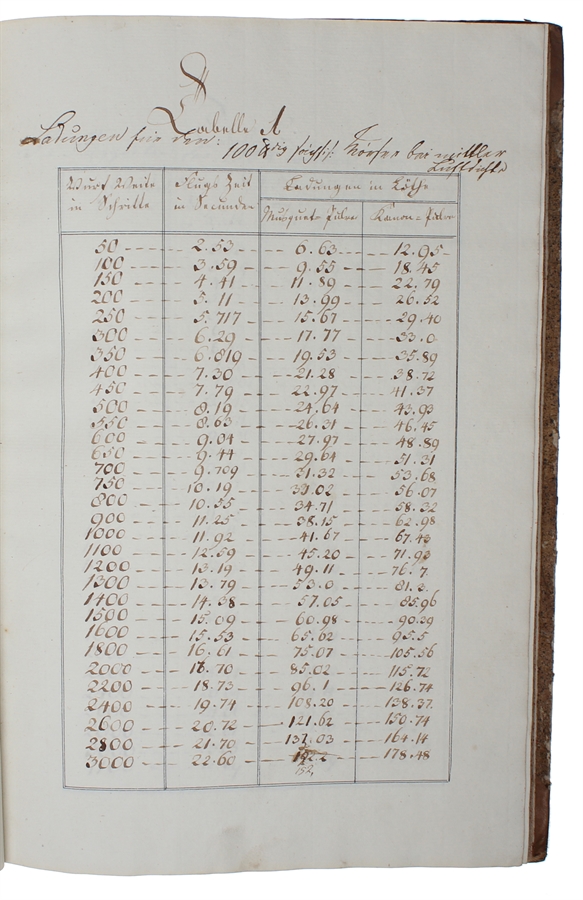 Tabelle A
Ladungen für den: 100 Mörser bei mittler
Luftdichte
Wurf Weite Flugs Zeit Ladungen in Lothe
in Schritte in Secunden Musquet Pulver Kanon = Pulver
50 2.53 6.63 12.95
100 3.59 9.55 18.45
150 4.41 11.89 22.79
200 5.11 13.99 26.52
250 5.717 15.67 29.40
300 6.29 17.77 33.0
350 6.819 19.53 35.89
400 7.30 21.28 38.72
450 7.79 22.97 41.37
500 8.19 24.64 43.93
550 8.63 26.31 46.45
600 9.04 27.97 48.89
650 9.44 29.64 51.31
700 9.709 31.32 53.68
750 10.19 33.02 56.07
800 10.55 34.71 58.32
900 11.25 38.15 62.98
1000 11.92 41.67 67.43
1100 12.59 45.20 71.93
1200 13.19 49.11 76.7
1300 13.79 53.0 81.3
1400 14.38 57.05 85.96
1500 15.09 60.98 90.29
1600 15.53 65.62 95.5
1800 16.61 75.07 105.56
2000 18.70 85.02 115.72
2200 18.73 96.1 126.74
2400 19.74 108.20 138.37
2600 20.72 121.62 150.74
2800 21.70 137.03 164.14
3000 22.60 178.48
152,